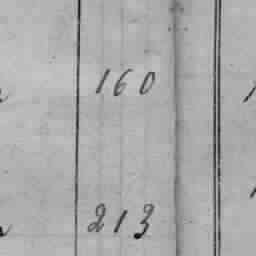 160
213